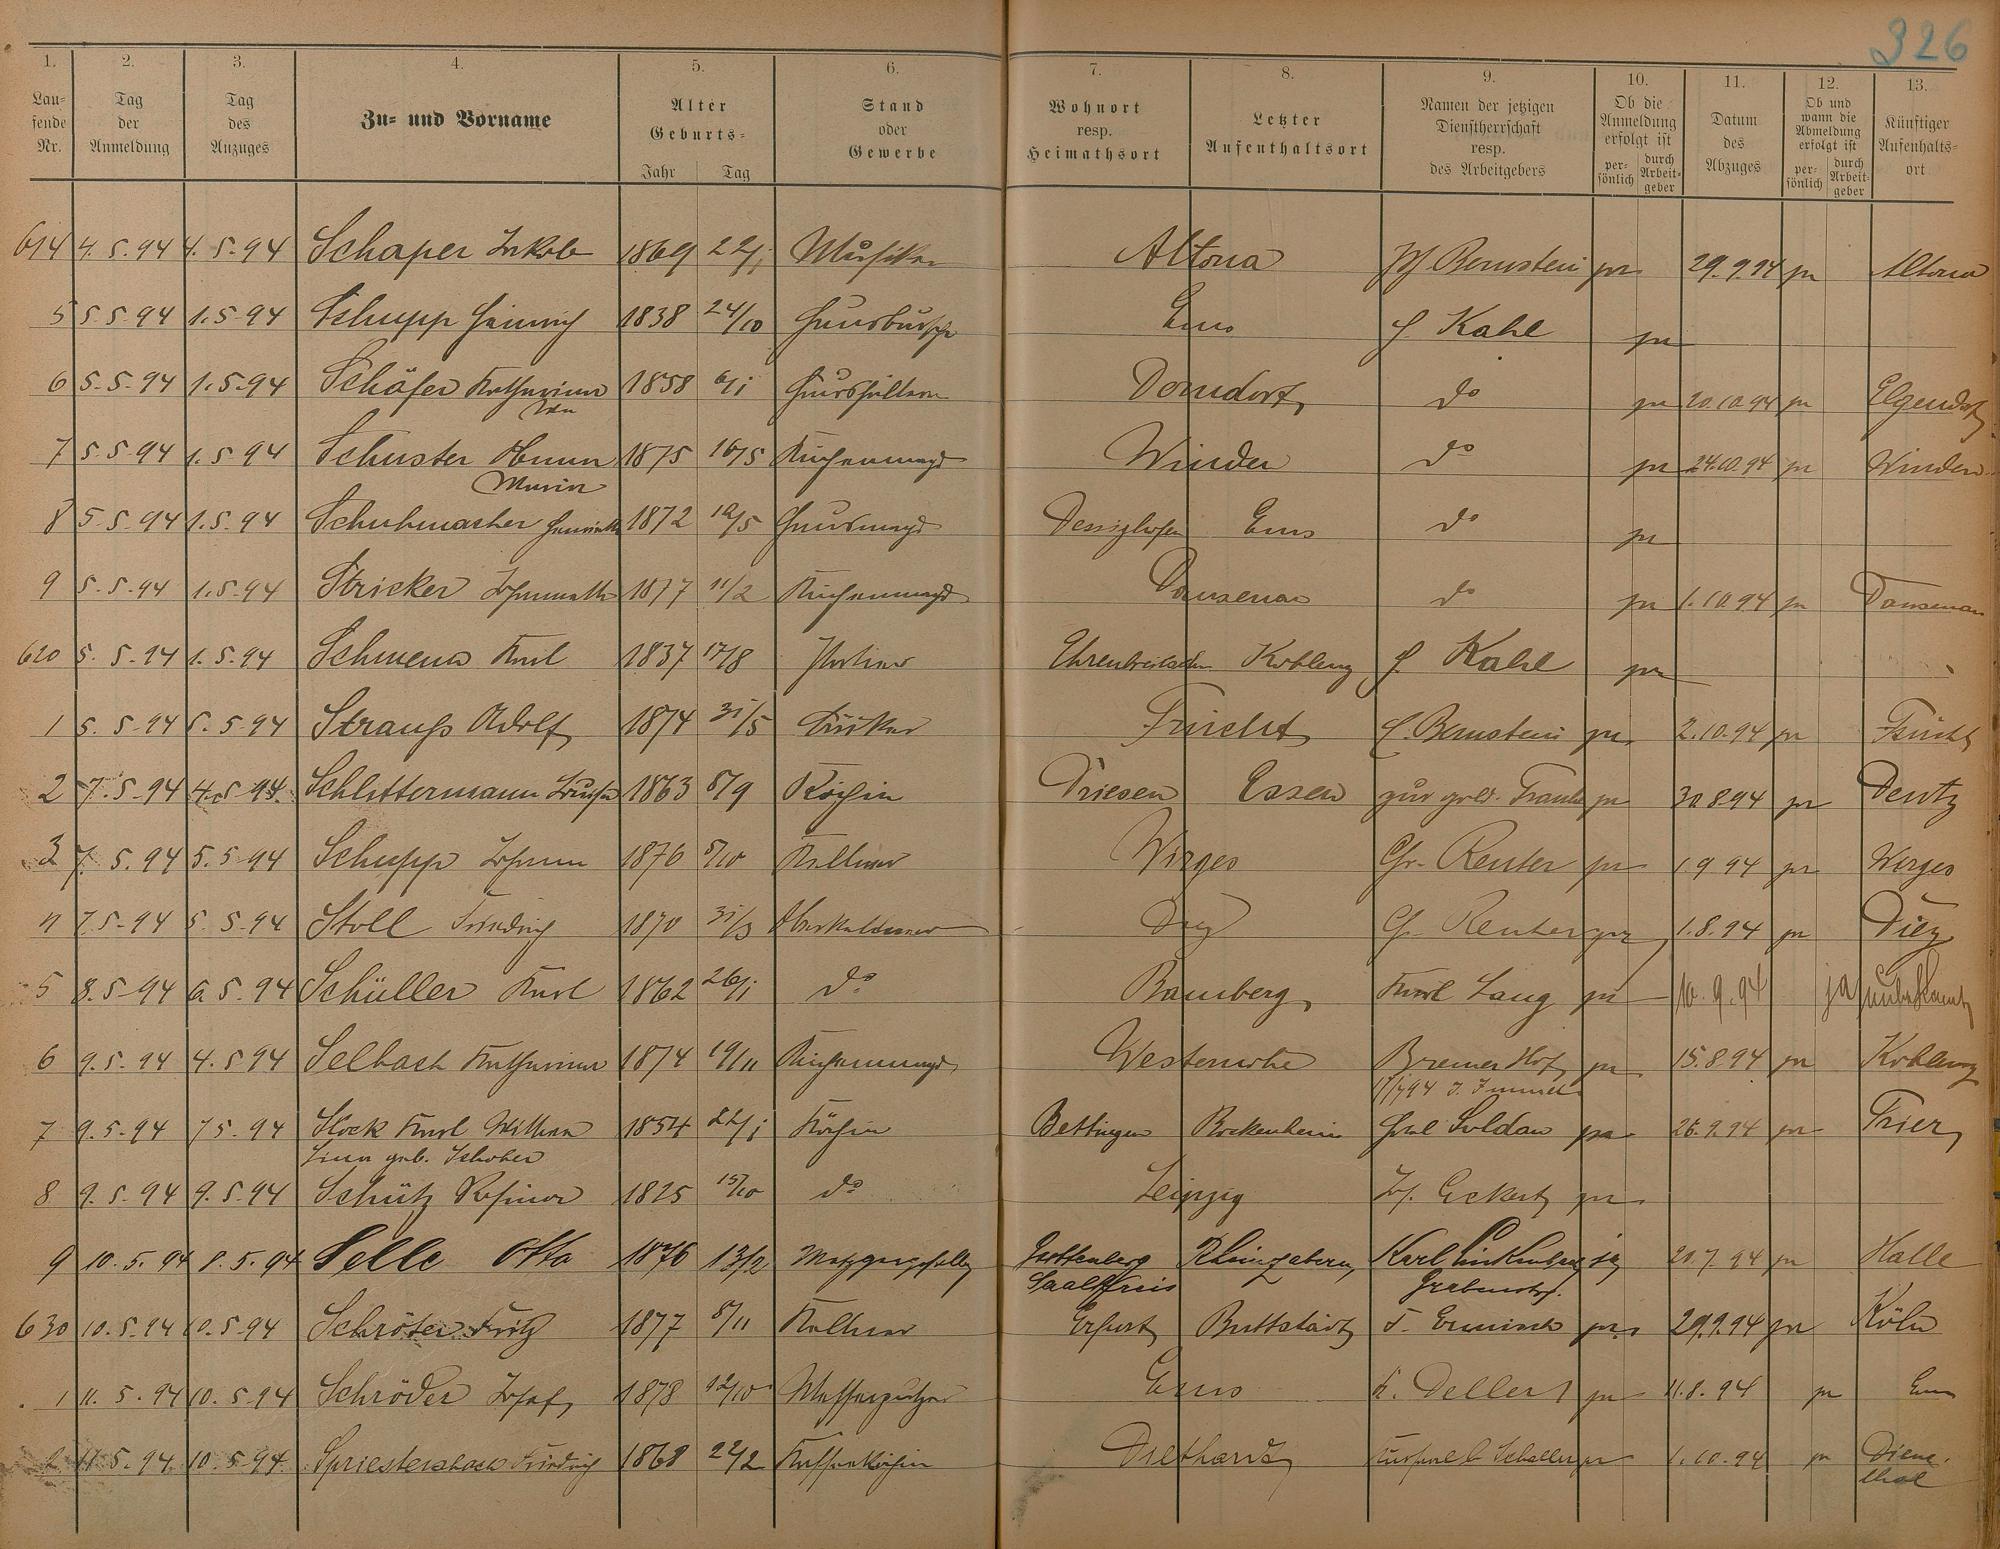 326
1. 2. 3. 4. 5. 6. 7. 8. 9. 10. 11. 12. 13.
Lau-fende Nr. Tag der Anmeldung Tag des Anzuges Zu- und Vorname Alter Geburts- Jahr Tag Stand oder Gewerbe Wohnort resp. Heimathsort Letzter Aufenthaltsort Namen der jetzigen Dienstherrschaft resp. des Arbeitgebers Ob die Anmeldung erfolgt ist per-sönlich durch Arbeit-geber Datum des Abzuges Ob und wann die Abmeldung erfolgt ist per-sönlich durch Arbeit-geber Künftiger Aufenthalts-ort
614 4.5.94 4.5.94 Schaper Jakob 1869 22/1 Musiker Altona Bernstein pr 29.9.94 pr Altona
5 5.5.94 1.5.94 Schupp Heinrich 1838 24/10 Hausbursch Ems H. Kahl pr
6 5.5.94 1.5.94 Schäfer Katharina 1858 6/1 Haushälterin Dorndorf do pr 20.10.94 pr Elgendorf
7 5.5.94 1.5.94 Schuster Anna Maria 1875 16/5 Küchenmagd Winden do pr 24.10.94 pr Winden
8 5.5.94 1.5.94 Schuhmacher Henriette 1872 10/5 Hausmagd Dessighofen Ems do pr
9 5.5.94 1.5.94 Stricker Johannette 1877 11/2 Küchenmagd Dausenau do pr 1.10.94 pr Dausenau
620 5.5.94 1.5.94 Karl 1837 17/8 Portier Ehrenbreitstein Koblenz H. Kahl pr
1 5.5.94 5.5.94 Strauß Adolf 1874 31/5 Frücht Bernstein pr 2.10.94 pr Frücht
2 7.5.94 4.5.94 Schlittermann Louise 1863 8/9 Köchin Driesen Essen zur gold. Traube pr 30.8.94 pr Deutz
3 7.5.94 5.5.94 Schupp Johann 1876 5/10 Kellner Wirges Gr. Reuter pr 1.9.94 pr Wirges
4 7.5.94 5.5.94 Stoll Friedrich 1870 31/3 Oberkellner Diez G. Reuter pr 1.8.94 pr Diez
5 8.5.94 6.5.94 Schüller Karl 1862 26/1 do Bamberg Karl Lang pr 10.9.94 ja unbekannt
6 9.5.94 4.5.94 Selbach Katharina 1874 19/11 Küchenmagd Westernohe Bremer Hof pr 15.8.94 pr Koblenz
7 9.5.94 7.5.94 Stock Karl Wilhelm 1854 22/1 Köchin Bettingen Bockenheim Soldan pr 26.9.94 pr Trier
Lina geb. Schober
8 9.5.94 9.5.94 Schütz Rosina 1825 15/10 do Leipzig Jos. Eckert pr
9 10.5.94 8.5.94 Selle Otto 1876 13/2 Metzgergeselle Rheinzabern Karl ja 20.7.94 pr Halle
Saalkreis Grabenstr.
630 10.5.94 10.5.94 Schröter Fritz 1877 5/11 Kellner Erfurt Buttstädt pr 29.9.94 pr Köln
1 11.5.94 10.5.94 Schröder Josef 1878 12/10 Messerputzer Ems K. Dellert pr 11.8.94 pr Ems
2 11.5.94 10.5.94 Spriestersbach Friedrich 1868 22/2 Kaffeeköchin Diethardt Kursaal Schaller pr 1.10.94 pr Dienethal